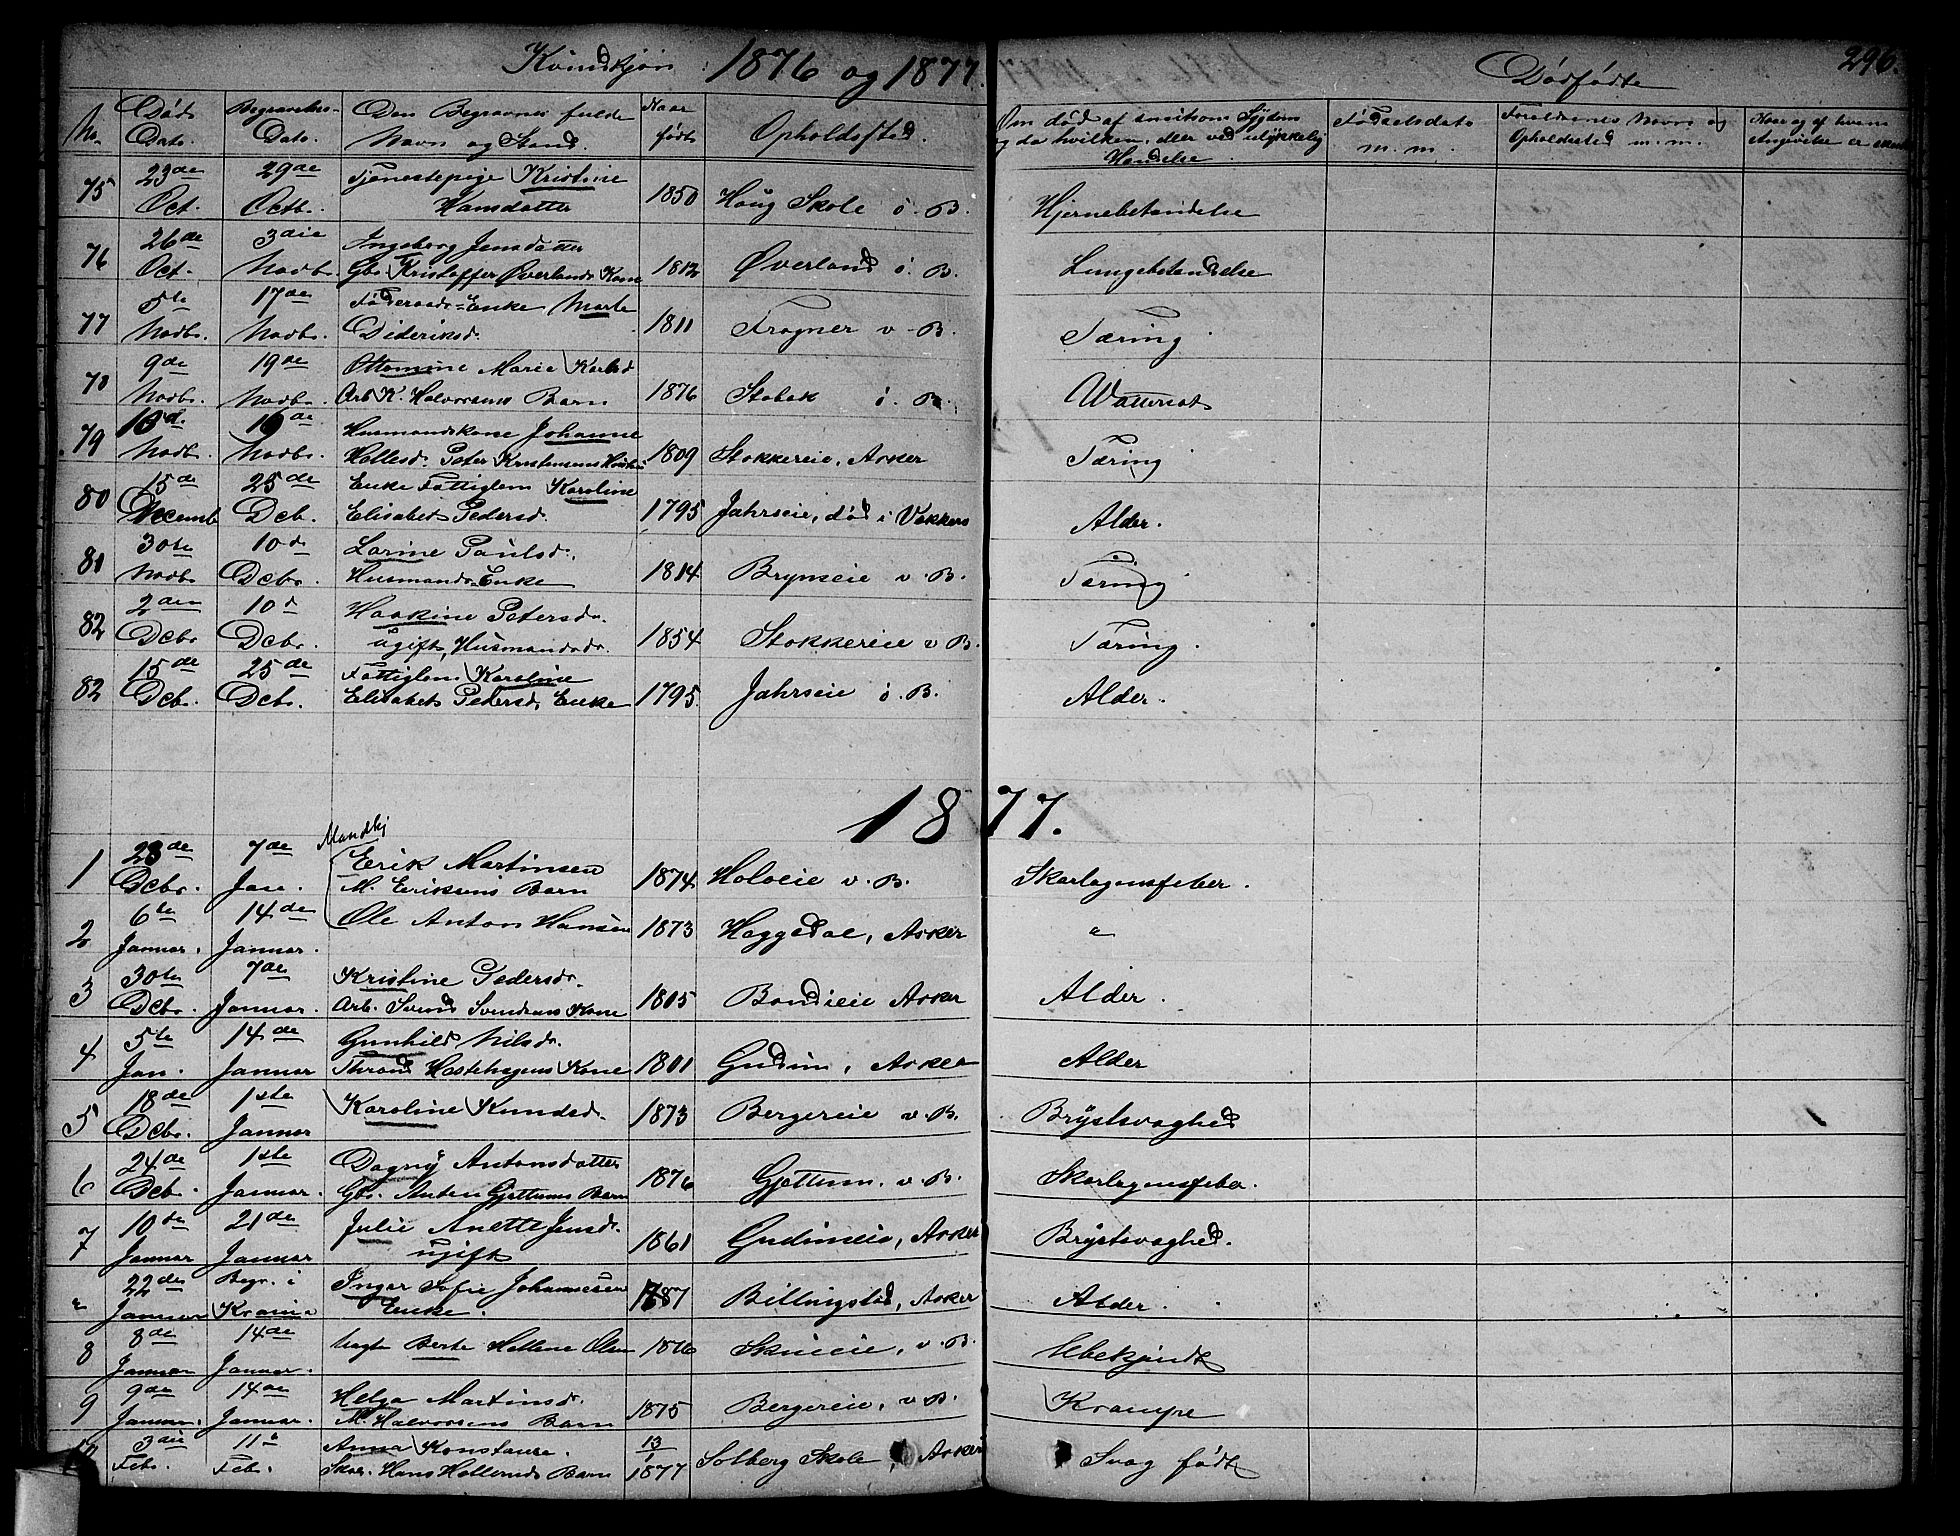 Kvindekjøn 1876 og 1877. Dødfødte 296.
No. Døds Dato. Begravelses- Dato. Den Begravnes fulde Navn og Stand. Naar født Opholdssted. Om død af ansitsom Sygdom og da hvilken, eller ved ulykkelig Hændelse. Fødselsdato m. m. Forældrenes Navn og Opholdssted m. m. Naar og af hvem Angivelse er
75 23de Oct. 29de Octb. Tjenestepige Kristine Hansdatter 1850 Houg Skole ø. B. Hjernebetændelse
76 26de Oct. 3die Novbr. Ingeborg Jensdatter Gbr. Kristoffer Øverlands Kone 1812 Øverland ø. B. Lungebetændelse
77 5te Novbr. 17de Novbr. Føderaads-Enke Marte Dideriksd. 1811 Frogner v. B. Tæring
78 9de Novbr. 19de Novbr. Ottomine Marie Karlsd. Arb. K. Halvorsens Barn 1876 Stabæk ø. B. Vattersot
79 10d. Novb. 16de Novbr. Husmandskone Johanne Hellesd. Peter Kristensens 1809 Stokkereie, Asker Tæring
80 15de Decemb 25de Dcb. Enke Fattiglem Karoline Elisabet Pedersd. 1795 Jahrseie, død i Vækkerø Alder.
81 30te Novb. 10d Dcbr. Larine Paulsd. Husmands-Enke 1814 Brynseie v. B. Tæring
82 2den Dcbr. 10d Dcbr. Haakine Petersd. ugift, Husmandsdr. 1854 Stokkereie v. B. Tæring.
82 15de Dcbr. 25de Dcbr. Fattiglem Karoline Elisabet Pedersd. Enke 1795 Jahrseie ø. B. Alder.
1877.
Mandkj
1 23de Dcbr. 7de Jan. Erik Martinsen M. Eriksens Barn 1874 Holoeie v. B. Skarlagensfeber.
2 6te Januar. 14de Januar. Ole Anton Hansen 1873 Haggedal, Asker "
3 30te Dcbr. 7de Januar. Kristine Pedersdr. Arb. Svend Svendsens Kone 1805 Bondieie Asker Alder.
4 5te Jan. 14de Januar Gunhild Nilsdr. Thrond Hastehagens Kone 1801 Gudim, Asker Alder
5 18de Dcbr. 1ste Januar Karoline Knudsd. 1873 Bergereie v. B. Brystsvaghed
6 24de Dcb. 1ste Januar. Dagny Antonsdatter Gbr. Anton Gjettums Barn 1876 Gjettum. v. B. Skarlagensfeber.
7 10de Januar 21de Januar Julie Anette Jensdr. ugift 1861 Gudimeie, Asker Brystsvaghed.
" 22de Januar Begr. i Krania Inger Sofie Johannesen Enke. 1787 Billingstad, Asker Alder.
8 8de Januar 14de Januar. uægte Berte Hellene Olsen 1876 Skuieie, v. B. Ubekjendt
9 9de Januar. 14de Januar. Helga Martinsd. M. Halvorsens Barn 1875 Bergereie, v. B. Krampe
10 3die Febr. 11te Febr. Anna Konstanse. Skol. Hans Hellerud's Barn 13/1 1877 Solberg Skole, Asker Svag født